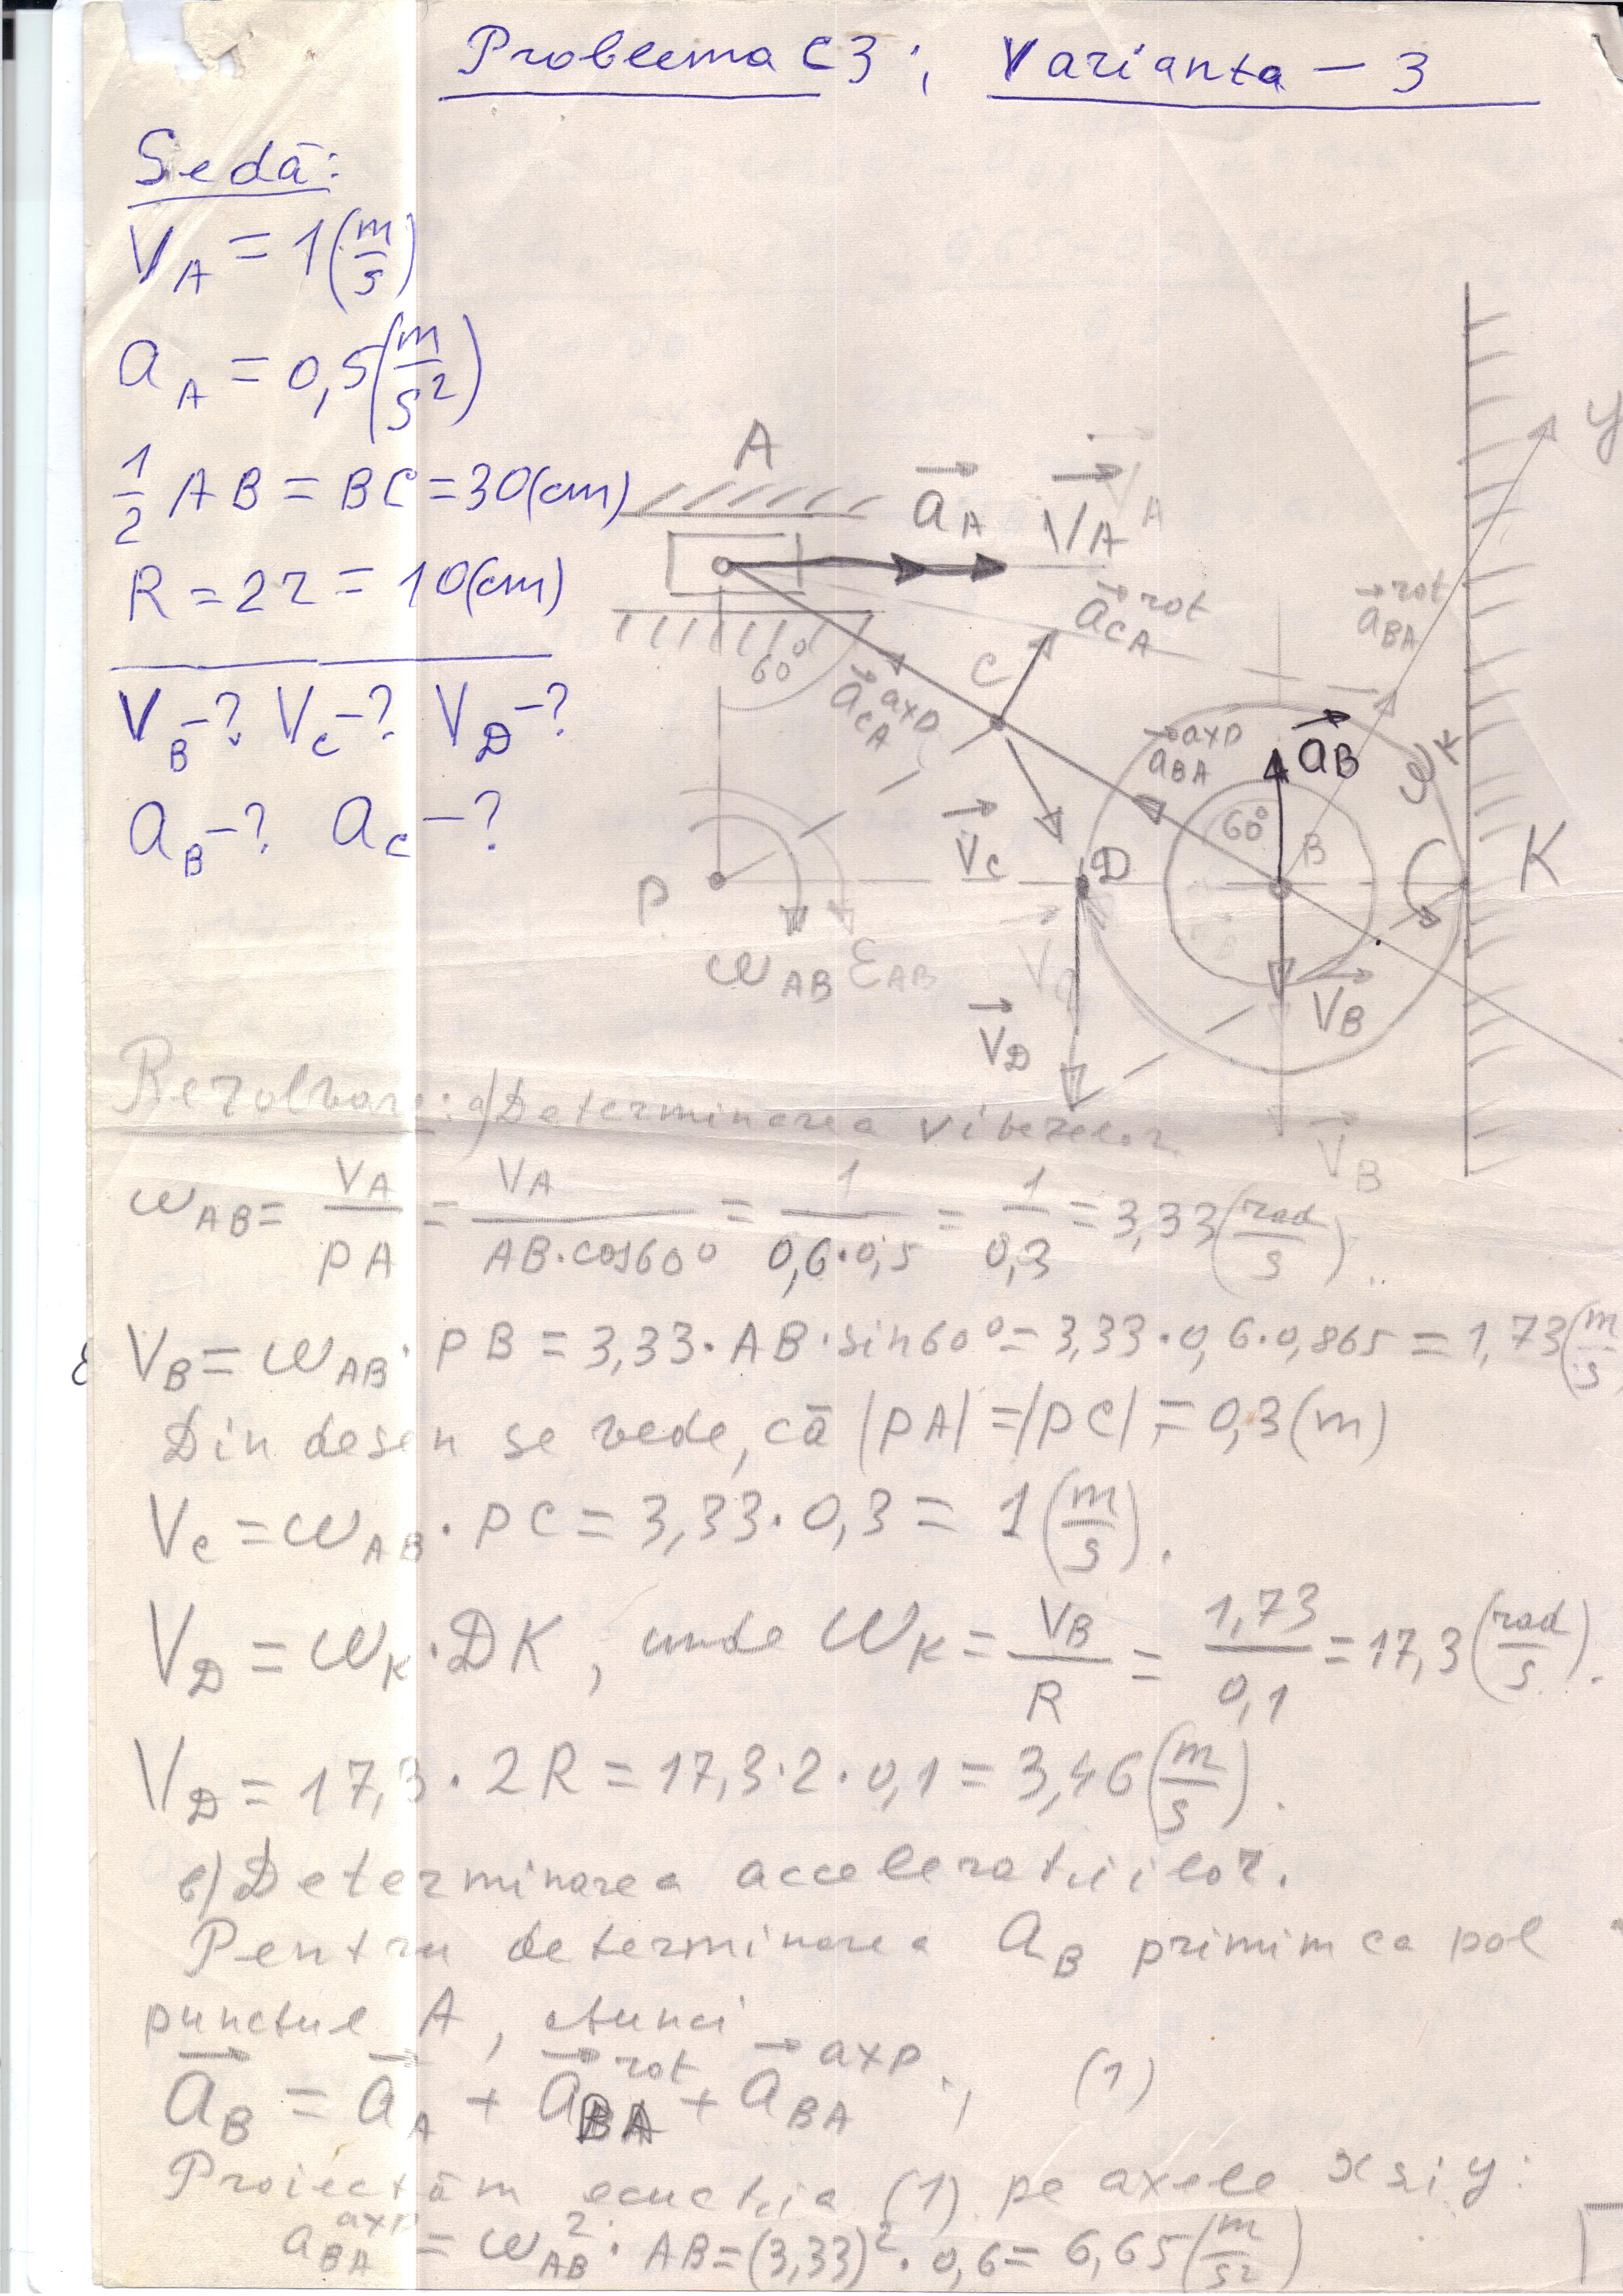 Problema C3; Varianta – 3
Sedă:
V_A = 1 (m/s)
a_A = 0,5 (m/s²)
1/2 AB = BC = 30 (cm)
R = 2r = 10 (cm)
V_B – ? V_C – ? V_D – ?
a_B – ? a_C – ?
A
a_A V_A
V_A
a_CA^rot
a_BA^rot
y
60°
C
a_CA^axp
a_BA^axp
a_B
60°
B
K
P
V_C
D
ω_AB ε_AB
V_D
V_B
V_B
Rezolvare: a) Determinarea vitezelor
ω_AB = V_A / PA = V_A / AB·cos60° = 1 / 0,6·0,5 = 1 / 0,3 = 3,33 (rad/s).
V_B = ω_AB · PB = 3,33 · AB · sin60° = 3,33 · 0,6 · 0,865 = 1,73 (m/s
Din desen se vede, că |PA| = |PC| = 0,3 (m)
V_C = ω_AB · PC = 3,33 · 0,3 = 1 (m/s).
V_D = ω_K · DK, unde ω_K = V_B / R = 1,73 / 0,1 = 17,3 (rad/s).
V_D = 17,3 · 2R = 17,3 · 2 · 0,1 = 3,46 (m/s).
b) Determinarea acceleratiilor.
Pentru determinarea a_B primim ca pol
punctul A, atunci
a_B = a_A + a_BA^rot + a_BA^axp, (1)
Proiectăm ecuatia (1) pe axele x si y:
a_BA^axp = ω_AB² · AB = (3,33)² · 0,6 = 6,65 (m/s²)